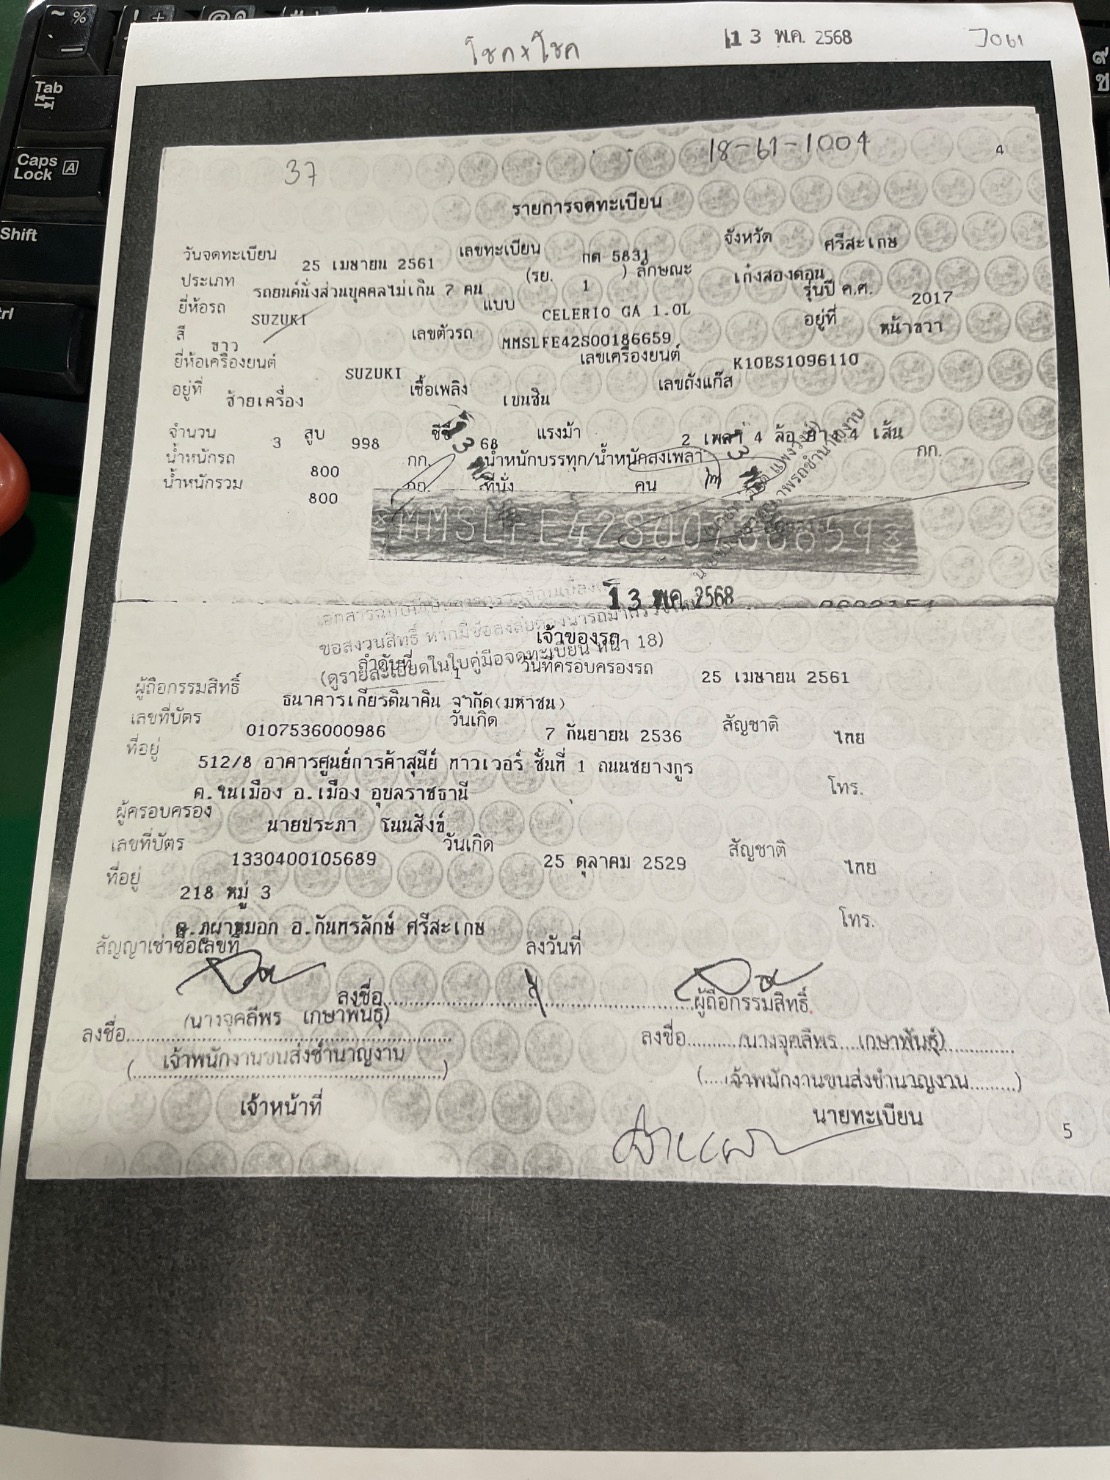 ~ %
Tab
Caps Lock A
Shift
โชค+โชค
13 พ.ค. 2568
J061
37
18-61-1004
4
รายการจดทะเบียน
วันจดทะเบียน 25 เมษายน 2561 เลขทะเบียน กต 5831 จังหวัด ศรีสะเกษ
ประเภท รถยนต์นั่งส่วนบุคคลไม่เกิน 7 คน (รย. 1 ) ลักษณะ เก๋งสองตอน
ยี่ห้อรถ SUZUKI แบบ CELERIO GA 1.0L รุ่นปี ค.ศ. 2017
สี ขาว เลขตัวรถ MMSLFE42S00186659 อยู่ที่ หน้าขวา
ยี่ห้อเครื่องยนต์ SUZUKI เลขเครื่องยนต์ K10BS1096110
อยู่ที่ ซ้ายเครื่อง เชื้อเพลิง เบนซิน เลขถังแก๊ส
จำนวน 3 สูบ 998 ซีซี 68 แรงม้า 2 เพลา 4 ล้อ ยาง 4 เส้น
น้ำหนักรถ 800 กก. น้ำหนักบรรทุก/น้ำหนักลงเพลา กก.
น้ำหนักรวม 800 กก. ที่นั่ง คน
MMSLFE42S00186659
13 พ.ค. 2568
ขอสงวนสิทธิ์
(ดูรายละเอียดในใบคู่มือจดทะเบียน หน้า 18)
เจ้าของรถ
ลำดับที่ 1 วันที่ครอบครองรถ 25 เมษายน 2561
ผู้ถือกรรมสิทธิ์ ธนาคารเกียรตินาคิน จำกัด(มหาชน)
เลขที่บัตร 0107536000986 วันเกิด 7 กันยายน 2536 สัญชาติ ไทย
ที่อยู่ 512/8 อาคารศูนย์การค้าสุนีย์ ทาวเวอร์ ชั้นที่ 1 ถนนชยางกูร
ต.ในเมือง อ.เมือง อุบลราชธานี โทร.
ผู้ครอบครอง นายประภา โนนสังข์
เลขที่บัตร 1330400105689 วันเกิด 25 ตุลาคม 2529 สัญชาติ ไทย
ที่อยู่ 218 หมู่ 3
ต.ภูผาหมอก อ.กันทรลักษ์ ศรีสะเกษ โทร.
สัญญาเช่าซื้อเลขที่ ลงวันที่
ลงชื่อ ผู้ถือกรรมสิทธิ์
ลงชื่อ (นางจุคลีพร เกษาพันธุ์) ลงชื่อ (นางจุคลีพร เกษาพันธุ์)
(เจ้าพนักงานขนส่งชำนาญงาน) (เจ้าพนักงานขนส่งชำนาญงาน)
เจ้าหน้าที่ นายทะเบียน
5